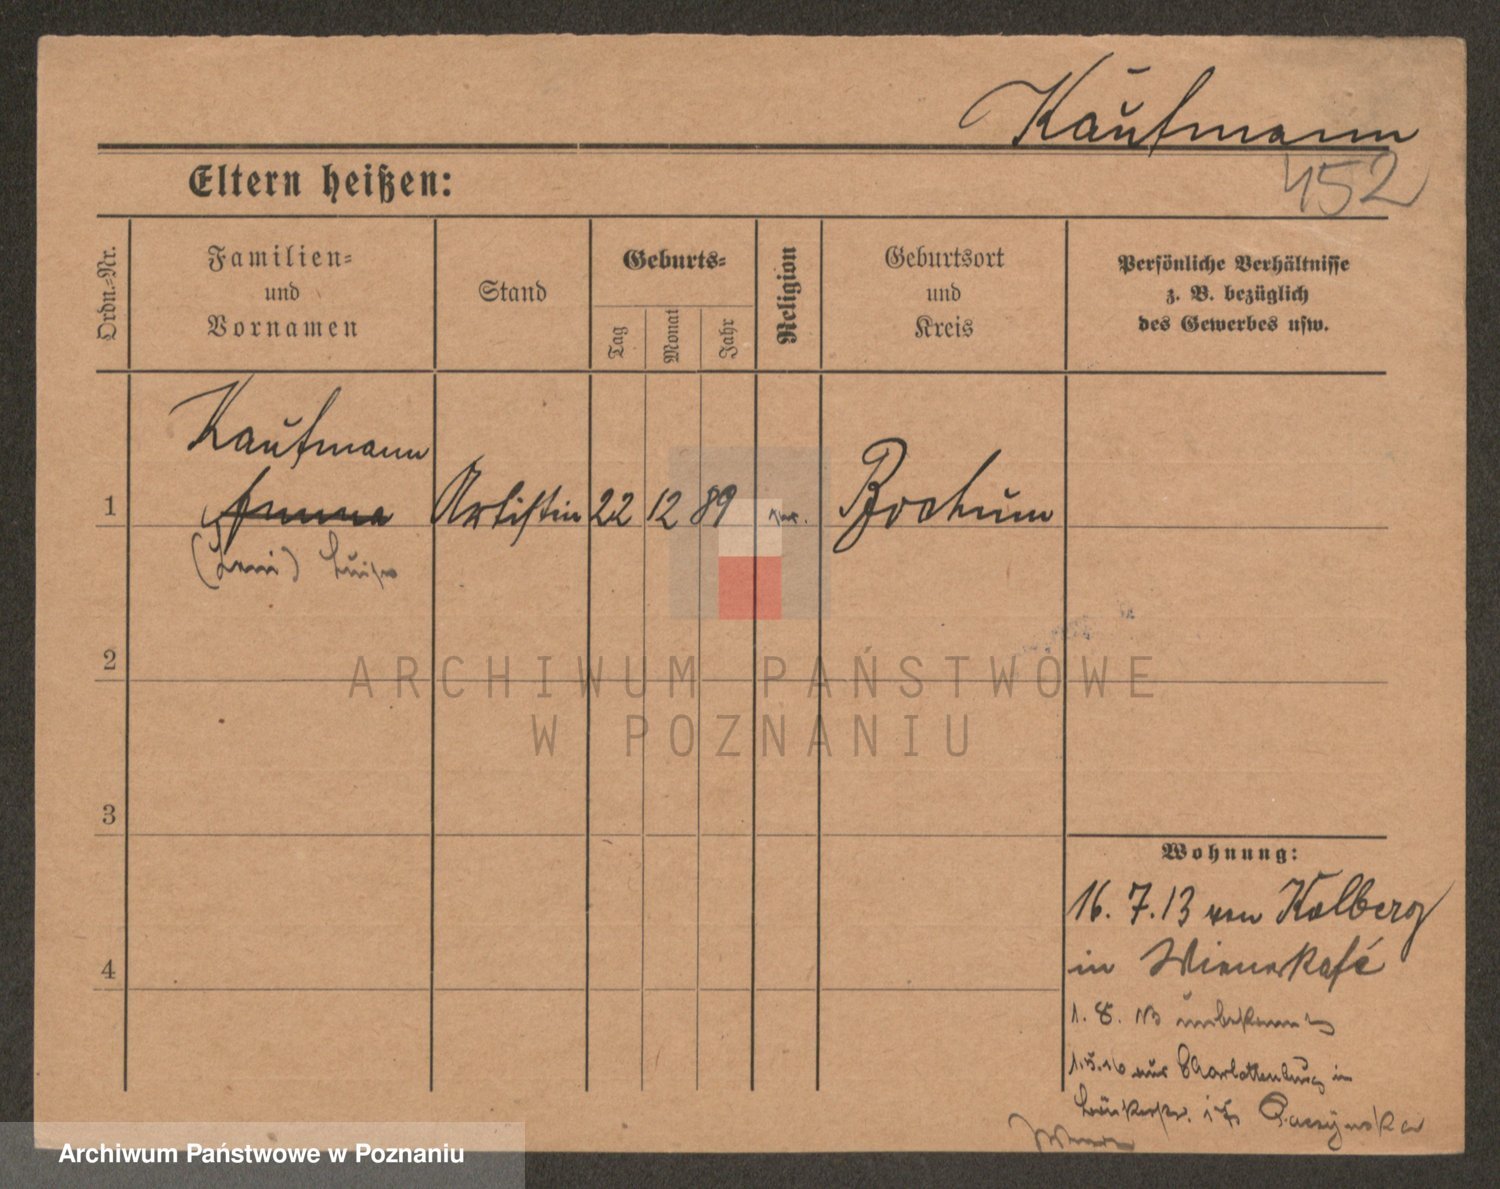 Kaufmann
452
Eltern heißen:
Ordn.-Nr.
Familien-
und
Vornamen
Stand
Geburts-
Tag
Monat
Jahr
Religion
Geburtsort
und
Kreis
Persönliche Verhältnisse
z. B. bezüglich
des Gewerbes usw.
Kaufmann
1 Anna Artistin 22 12 89 Bochum
Luise
2
ARCHIWUM PAŃSTWOWE
W POZNANIU
3
Wohnung:
16. 7. 13 von Kolberg
4
in Wienerkafé
1. 8. 13 unbekannt
Charlottenburg in
Archiwum Państwowe w Poznaniu